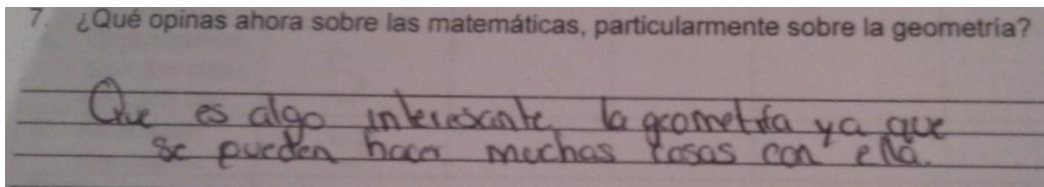 7. ¿Qué opinas ahora sobre las matemáticas, particularmente sobre la geometría?
Que es algo interesante, la geometría ya que
se pueden hacer muchas cosas con ella.